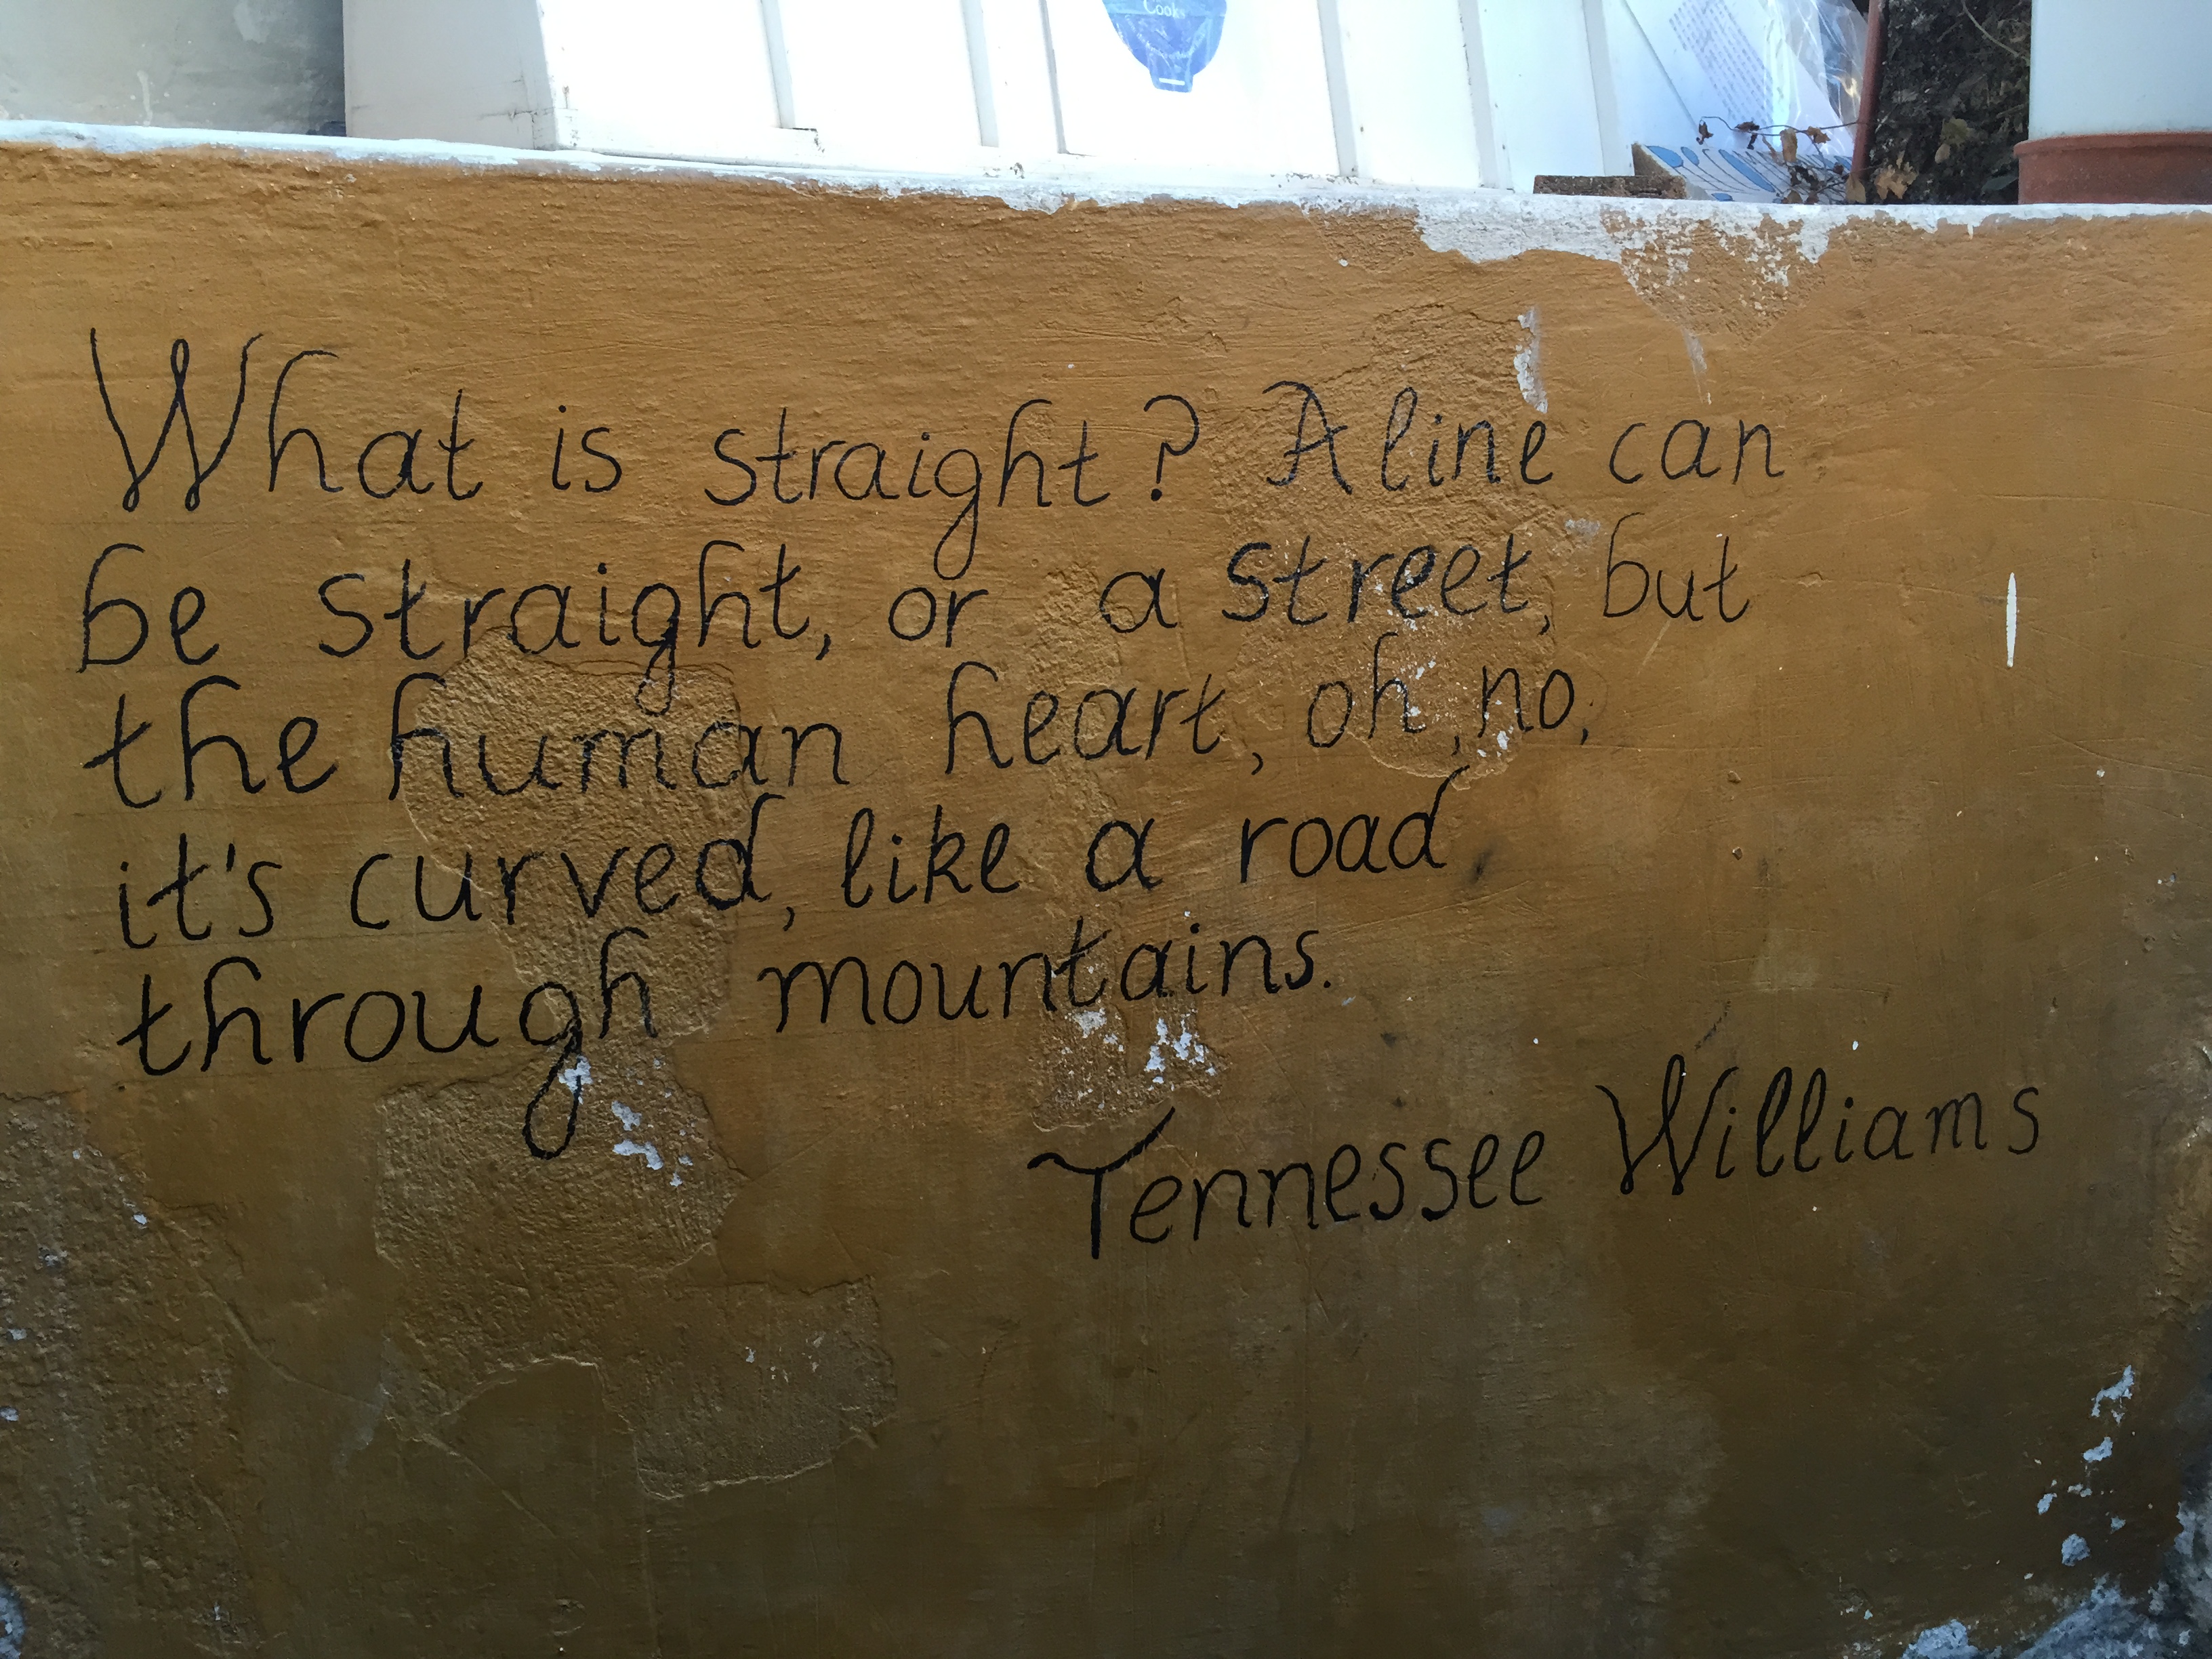 Cook
What is straight? A line can
be straight, or a street, but
the human heart, oh, no,
it's curved, like a road
through mountains.
Tennessee Williams